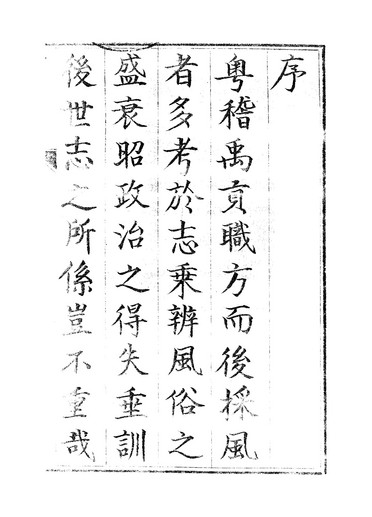 序
粵稽禹貢職方而後採風
者多考於志乘辨風俗之
盛衰昭政治之得失垂訓
後世志之所係豈不重哉